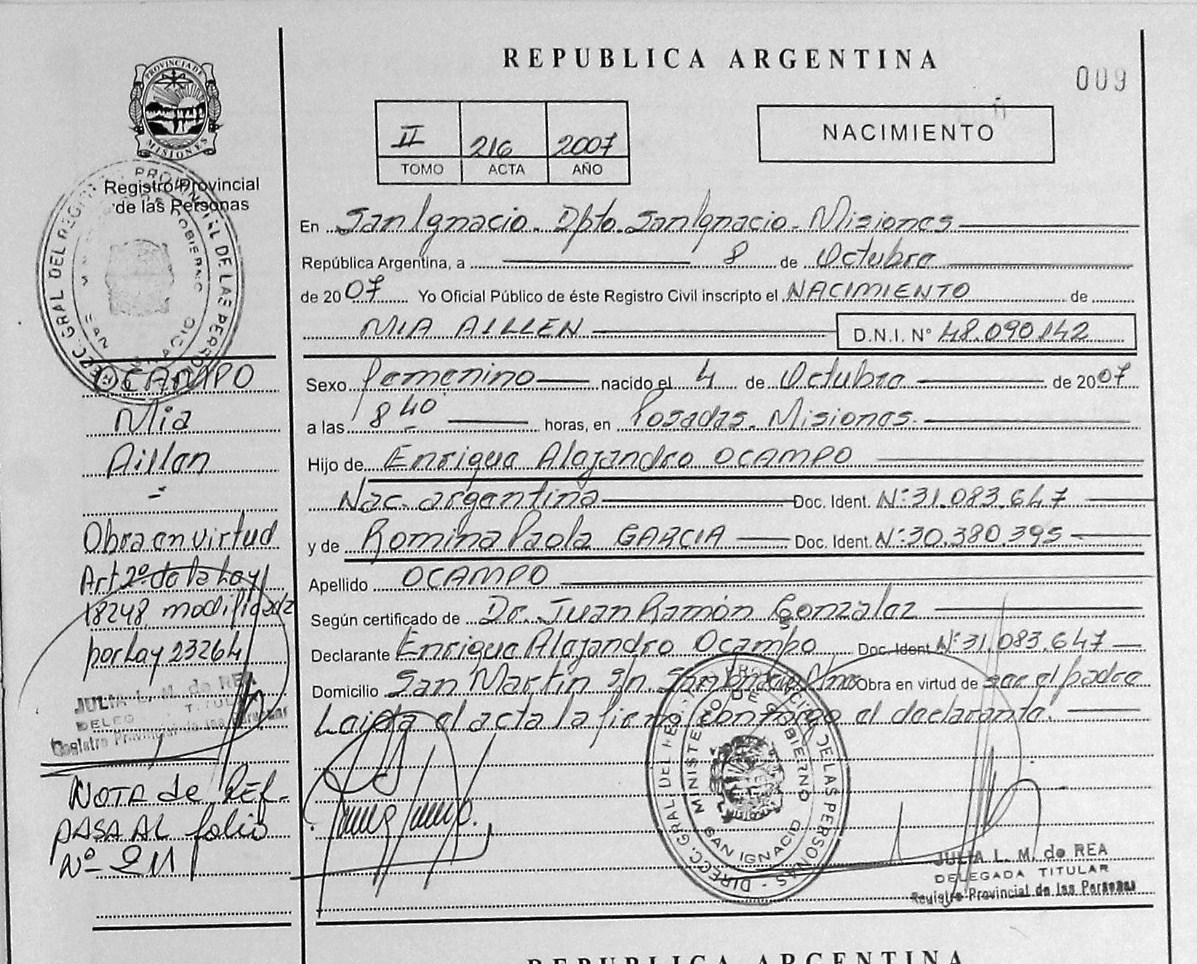 REPUBLICA ARGENTINA
009
PROVINCIA DE
MISIONES
Registro Provincial
de las Personas
II 216 2007
TOMO ACTA AÑO
NACIMIENTO
En San Ignacio. Dpto. San Ignacio. Misiones
República Argentina, a 8 de Octubre
de 2007 Yo Oficial Público de éste Registro Civil inscripto el NACIMIENTO de
MIA AILLEN D.N.I. N° 48.090.142
Sexo femenino nacido el 4 de Octubre de 2007
a las 8 40 horas, en Posadas. Misiones.
Hijo de Enrique Alejandro OCAMPO
Nac. argentina Doc. Ident. N° 31.083.647
y de Romina Paola GARCIA Doc. Ident. N° 30.380.395
Apellido OCAMPO
Según certificado de Dr. Juan Ramón Gonzalez
Declarante Enrique Alejandro Ocampo Doc. Ident N° 31.083.647
Domicilio San Martin S/n. San Obra en virtud de ser el padre
Leida el acta la firma conforme el declarante.
OCAMPO
Mia
Aillen
Obra en virtud
Art 2º de la Ley
18248 modificada
por Ley 23264
JULIA L. M. de REA
DELEGADA TITULAR
Registro Provincial de las Personas
NOTA de REF.
PASA AL folio
Nº 211
DIRECC. GRAL DEL REG. PROVINCIAL DE LAS PERSONAS
MINISTERIO DE GOBIERNO
SAN IGNACIO
JULIA L. M. de REA
DELEGADA TITULAR
Registro Provincial de las Personas
REPUBLICA ARGENTINA